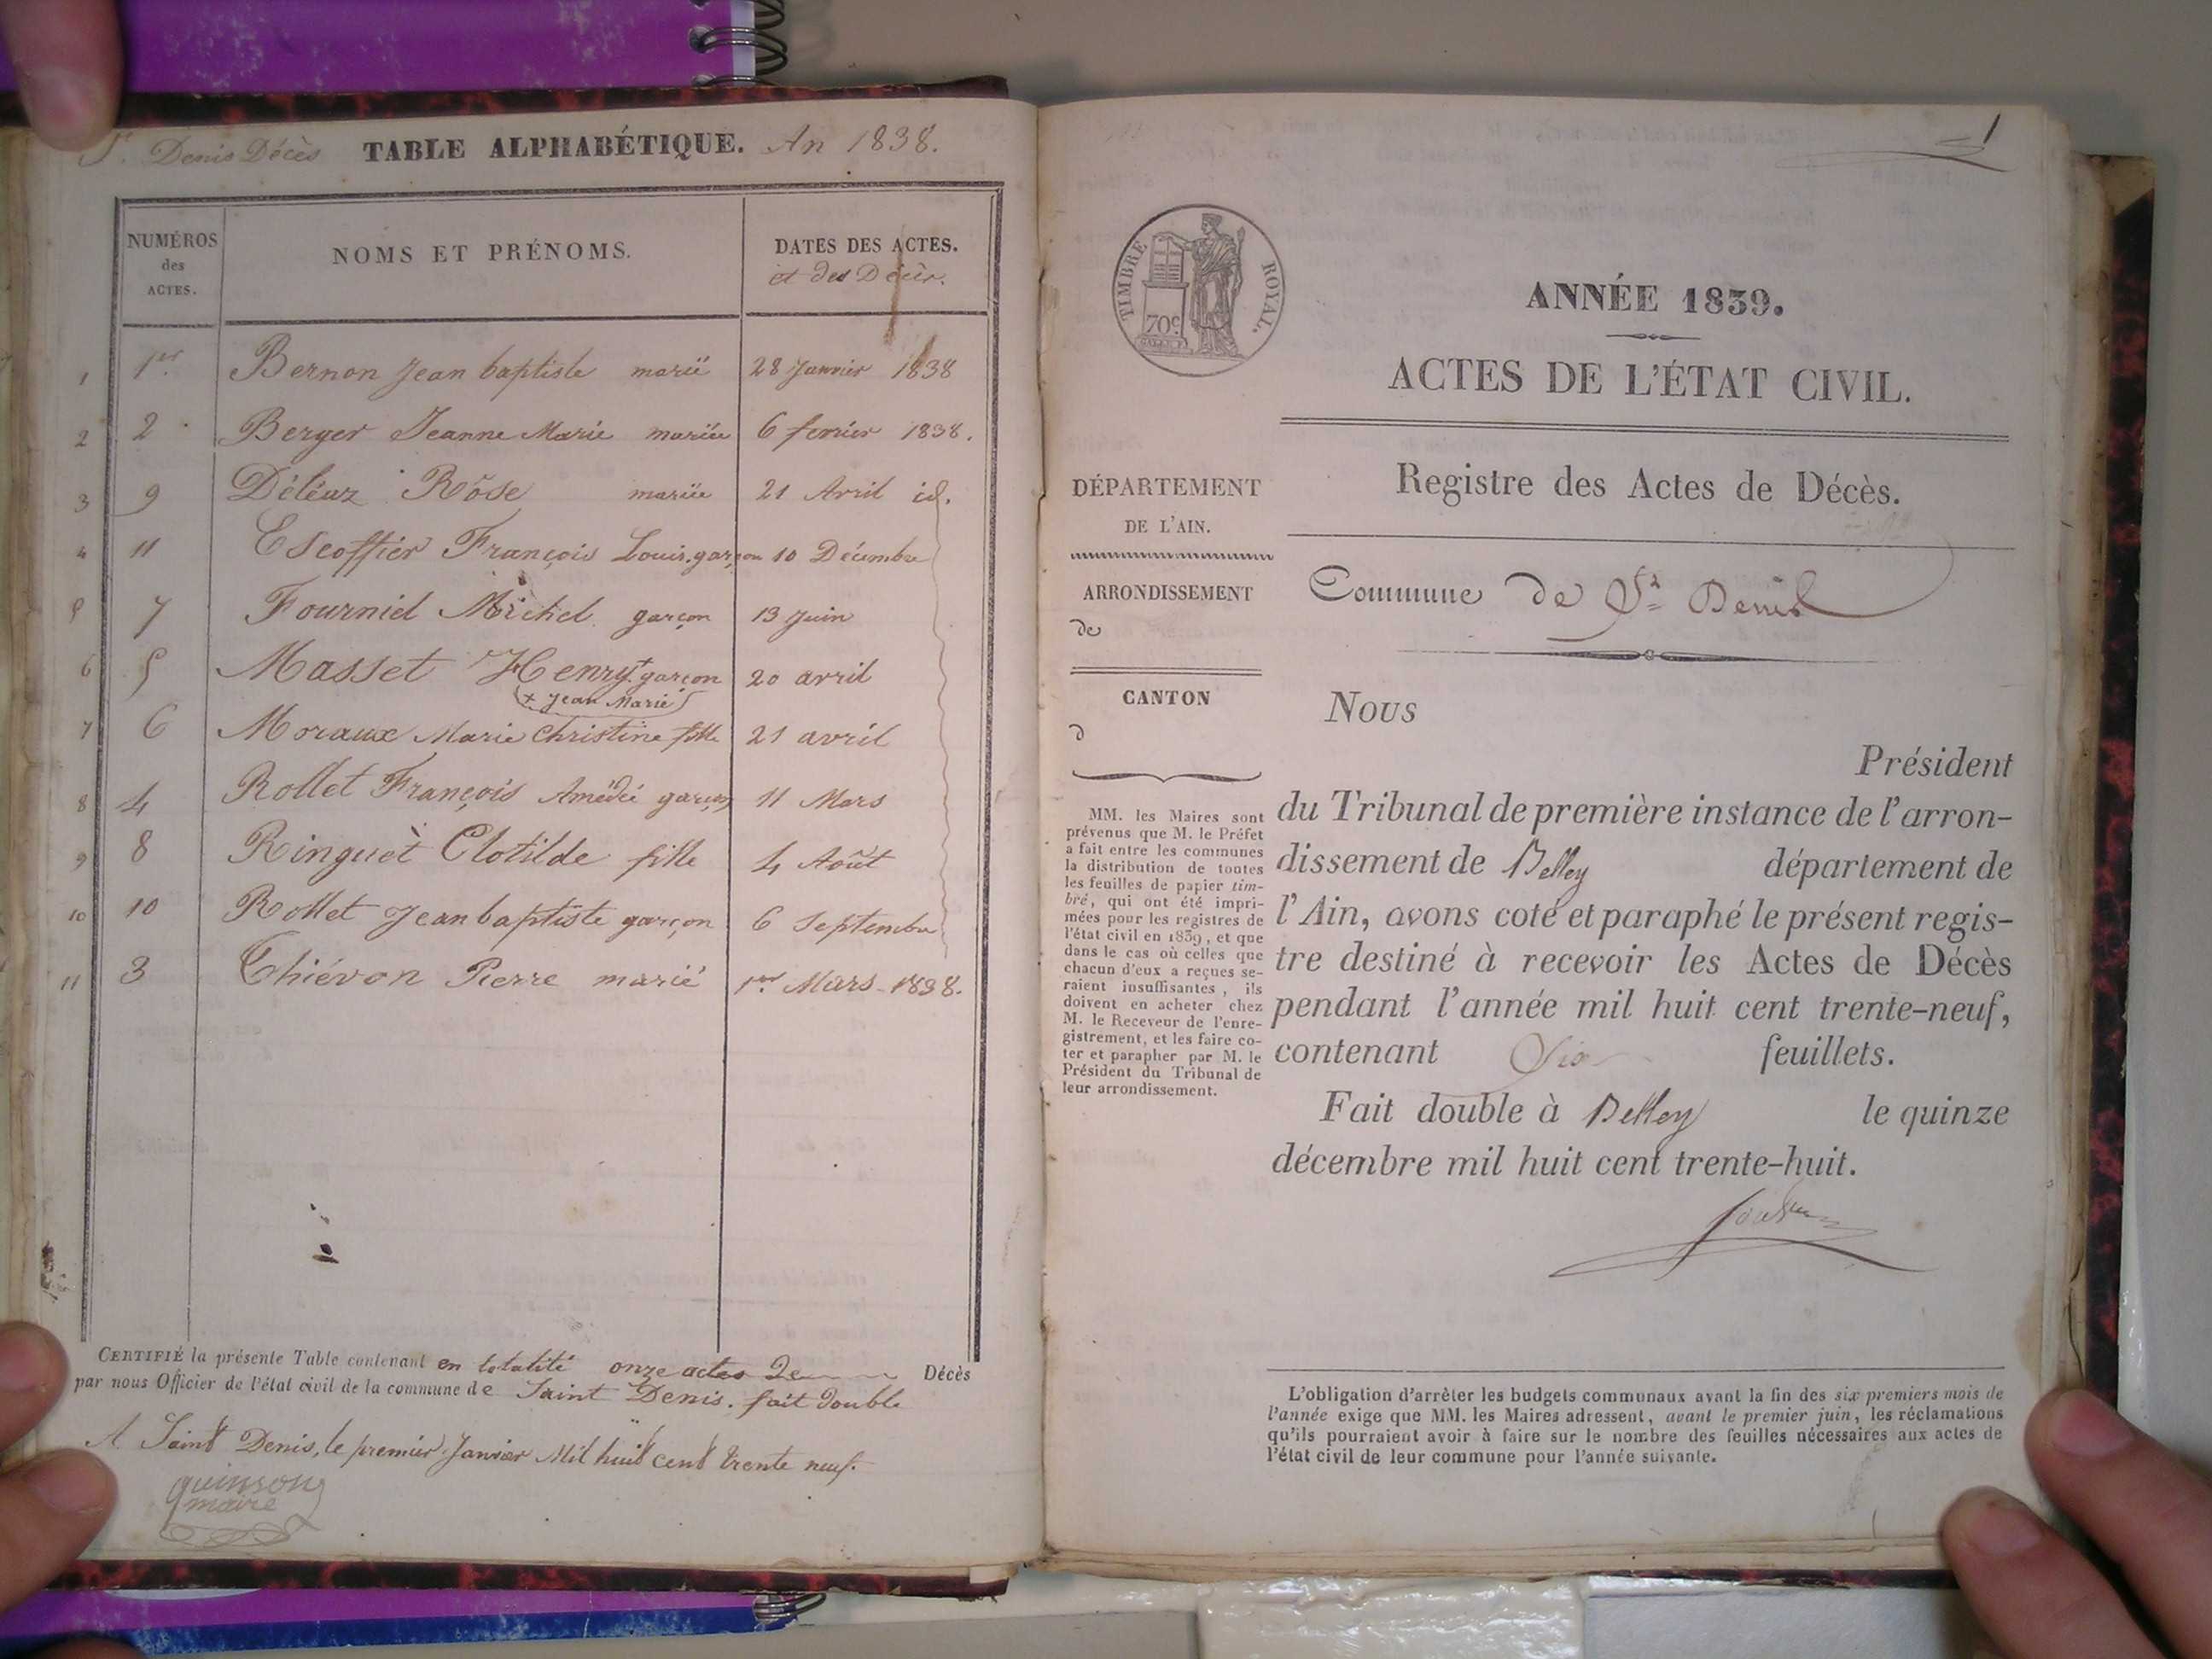 St. Denis Décès TABLE ALPHABÉTIQUE. An 1838.
NUMÉROS
des
ACTES.
NOMS ET PRÉNOMS.
DATES DES ACTES.
et des Décès.
1 1er. Bernon Jean baptiste marié 28 Janvier 1838
2 2 Berger Jeanne Marie mariée 6 fevrier 1838.
3 9 Déléaz Rôse mariée 21 Avril id.
4 11 Escoffier François Louis. garçon 10 Décembre
5 7 Fourniel Michel garçon 13 Juin
6 5 Masset Henry + garçon 20 avril
(+ Jean Marie)
7 6 Moraux Marie Christine fille 21 avril
8 4 Rollet François Amédé garçon 11 Mars
9 8 Ringuet Clotilde fille 4 Août
10 10 Rollet Jean baptiste garçon 6 Septembre
11 3 Thiévon Pierre marié 1er Mars 1838.
CERTIFIÉ la présente Table contenant en totalité onze actes de Décès
par nous Officier de l'état civil de la commune de Saint Denis. fait double
A Saint Denis, le premier Janvier Mil huit cent trente neuf.
quinson
maire
1
TIMBRE ROYAL.
70c
ANNÉE 1839.
ACTES DE L'ÉTAT CIVIL.
Registre des Actes de Décès.
Commune de St Denis
DÉPARTEMENT
DE L'AIN.
ARRONDISSEMENT
de
CANTON
d
MM. les Maires sont
prévenus que M. le Préfet
a fait entre les communes
la distribution de toutes
les feuilles de papier tim-
bré, qui ont été impri-
mées pour les registres de
l'état civil en 1839, et que
dans le cas où celles que
chacun d'eux a reçues se-
raient insuffisantes, ils
doivent en acheter chez
M. le Receveur de l'enre-
gistrement, et les faire co-
ter et parapher par M. le
Président du Tribunal de
leur arrondissement.
Nous
Président
du Tribunal de première instance de l'arron-
dissement de Belley département de
l'Ain, avons coté et paraphé le présent regis-
tre destiné à recevoir les Actes de Décès
pendant l'année mil huit cent trente-neuf,
contenant Six feuillets.
Fait double à Belley le quinze
décembre mil huit cent trente-huit.
L'obligation d'arrêter les budgets communaux avant la fin des six premiers mois de
l'année exige que MM. les Maires adressent, avant le premier juin, les réclamations
qu'ils pourraient avoir à faire sur le nombre des feuilles nécessaires aux actes de
l'état civil de leur commune pour l'année suivante.